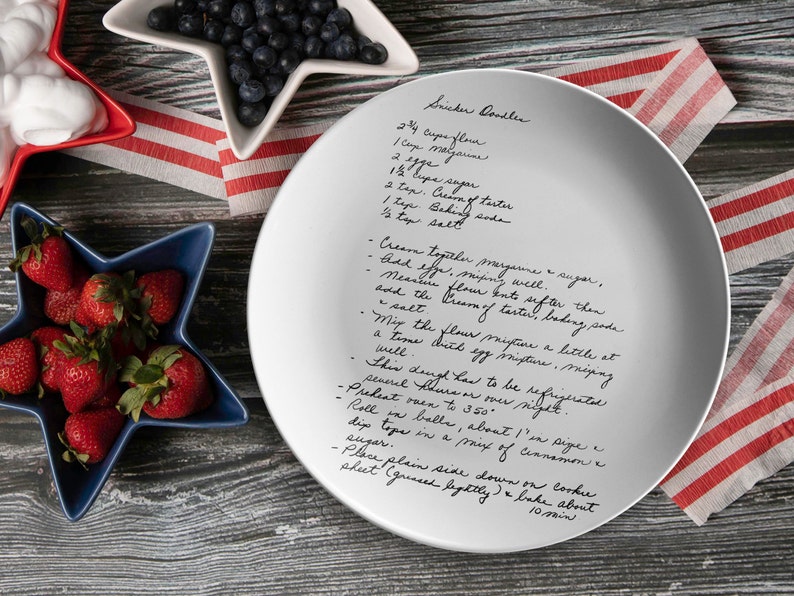 Snicker Doodles
2 3/4 cups flour
1 cup Margarine
2 eggs
1 1/2 cups sugar
2 tsp. Cream of tarter
1 tsp Baking soda
1/2 tsp salt
- Cream together margarine & sugar,
- Add eggs, mixing well.
- Measure flour into sifter then
add the Cream of tarter, baking soda
& salt.
- Mix the flour mixture a little at
a time with egg mixture, mixing
well.
- This dough has to be refrigerated
severel hours or over night.
- Preheat oven to 350°
- Roll in balls, about 1" in size &
dip tops in a mix of cinnamon &
sugar.
- Place plain side down on cookie
sheet (greased lightly) & bake about
10 min